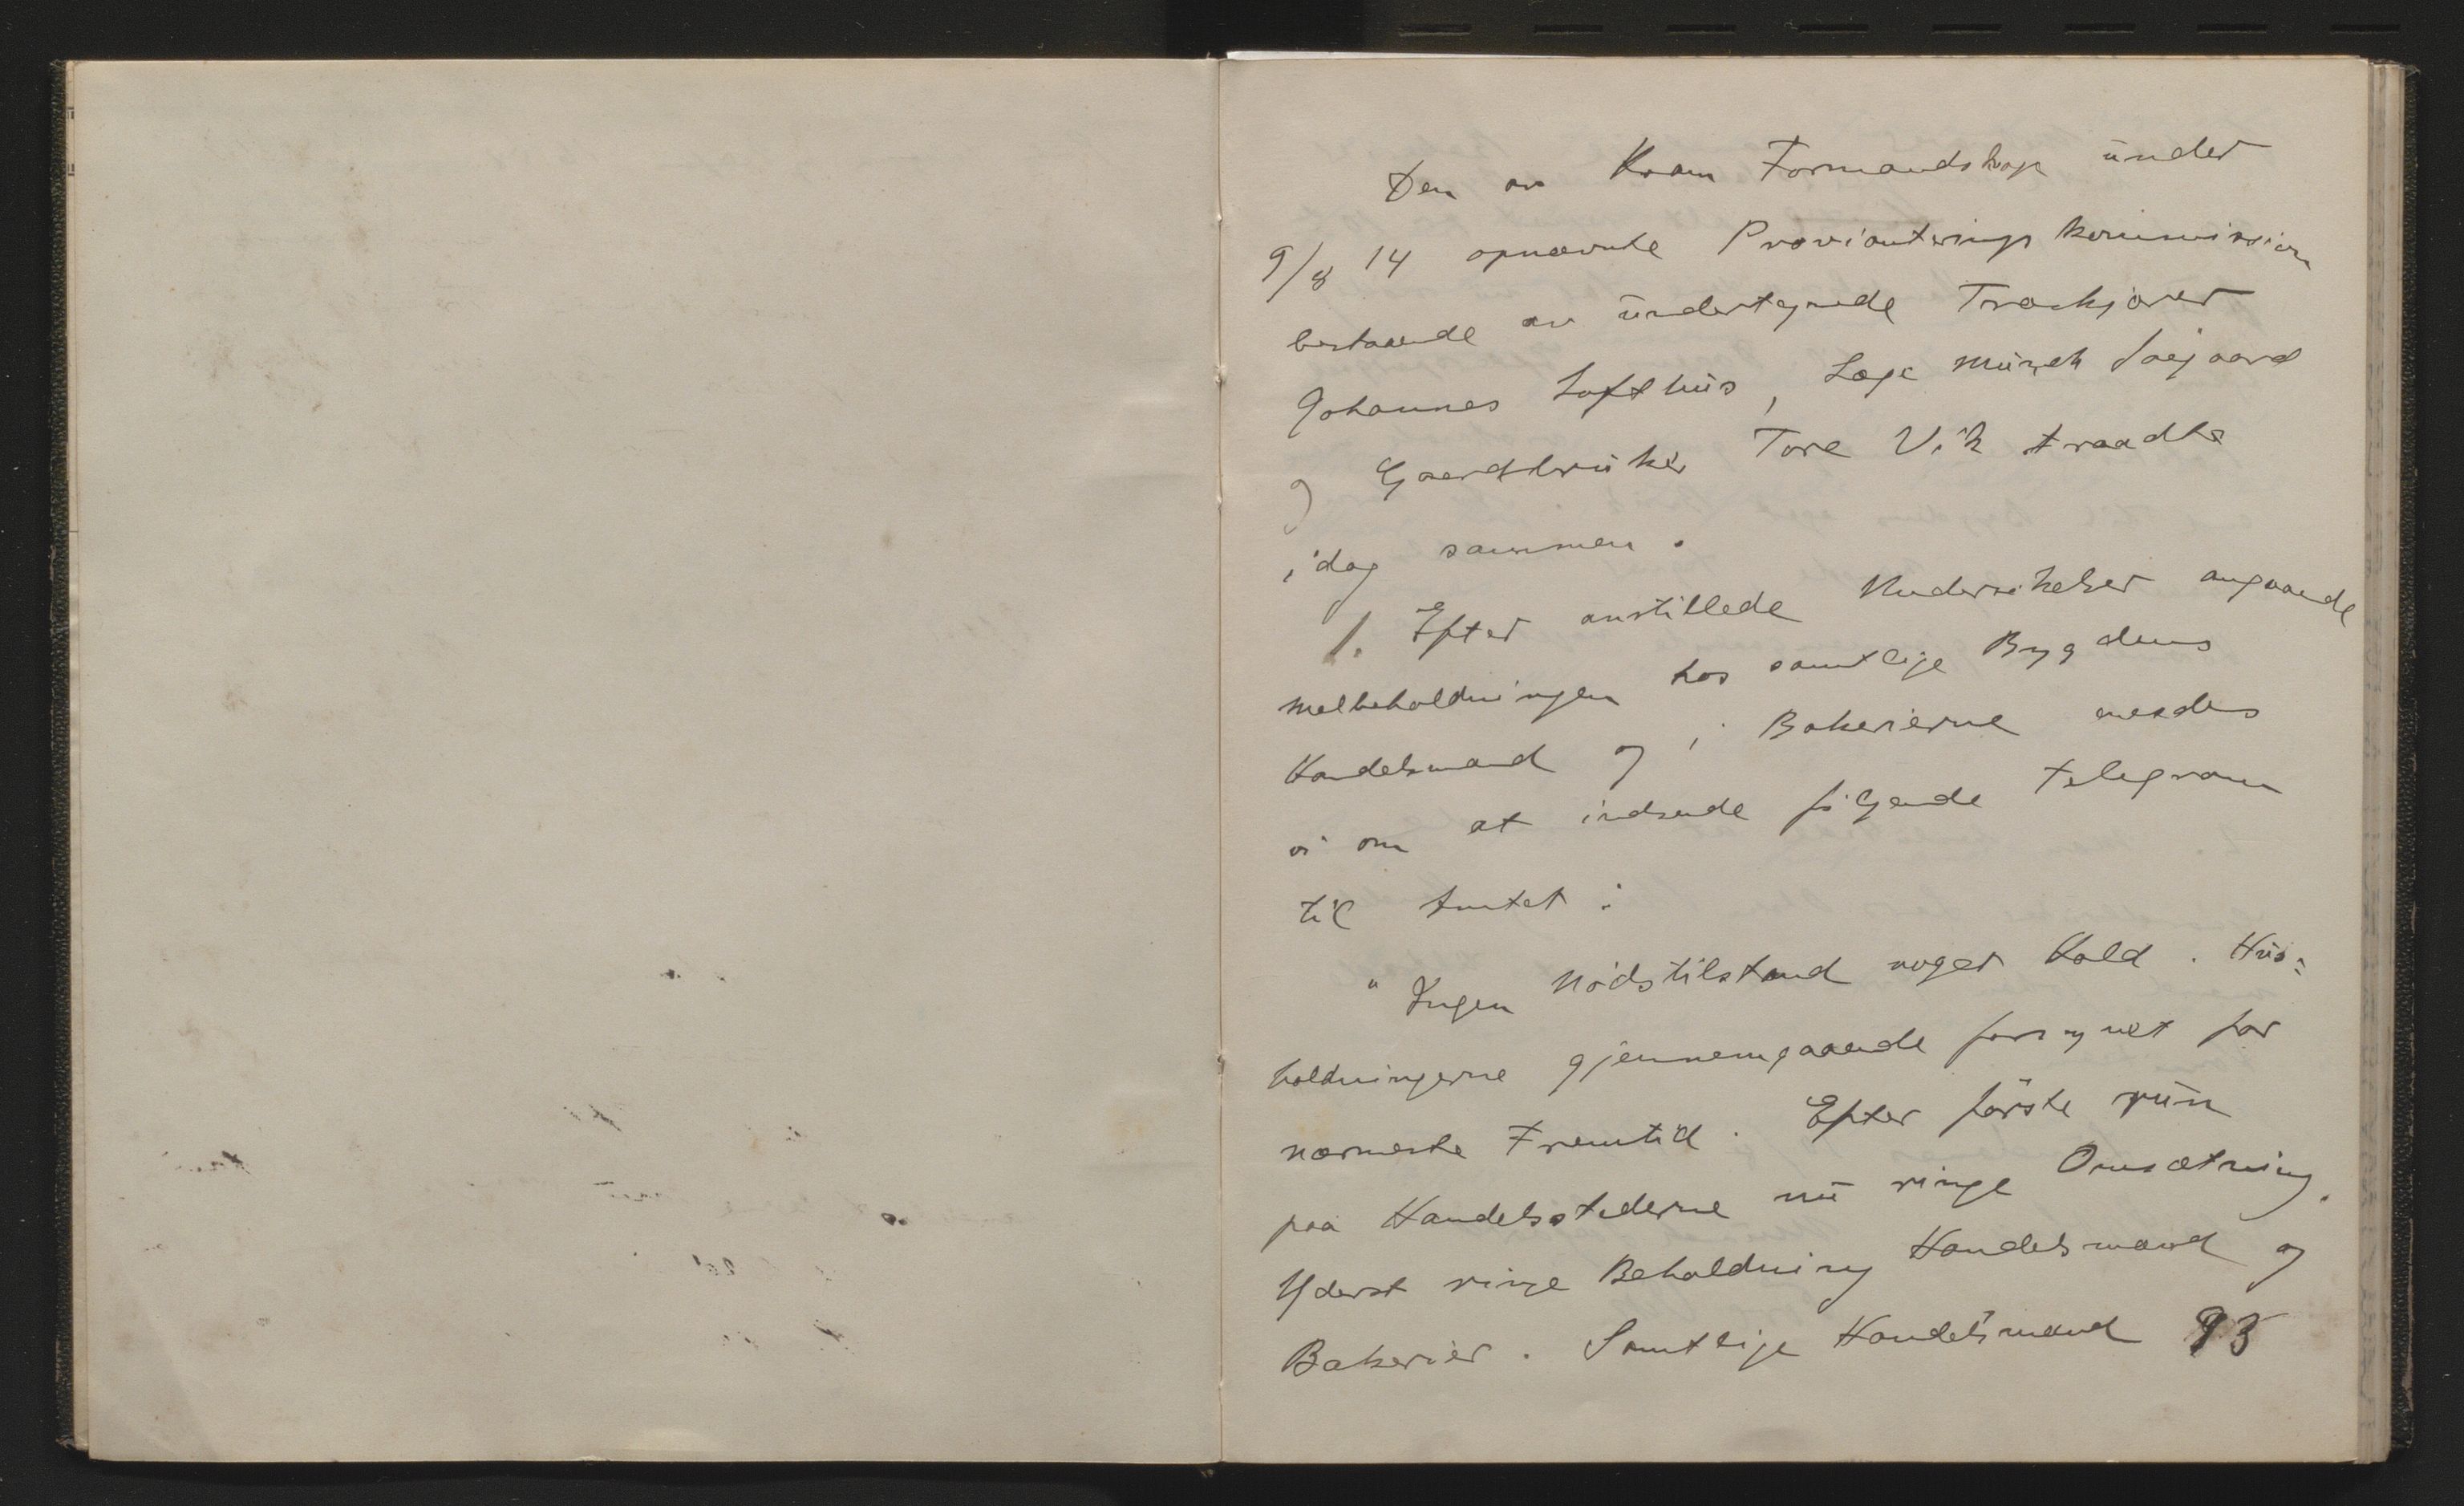 Den av Kvam Formandskap under
9/8 14 opnævnte Provianteringskommission
bestaaende av undertegnede
Johannes Lofthus, Læge Münch Søegaard
og Gaardbruker Tore Vik traadte
idag sammen.
1. Efter anstillede Undersøkelser angaaende
melbeholdningen hos samtlige Bygdens
Handelsmænd og i Bakerierne enedes
vi om at indsende følgende Telegram
til Amtet:
" Ingen Nødstilstand noget Hold. Hus=
holdningerne gjennemgaaende forsynet for
nærmeste Fremtid. Efter første run
paa Handelsstederne nu ringe Omsætning.
Yderst ringe Beholdning Handelsmænd og
Bakerier. Samtlige Handelsmænd 93